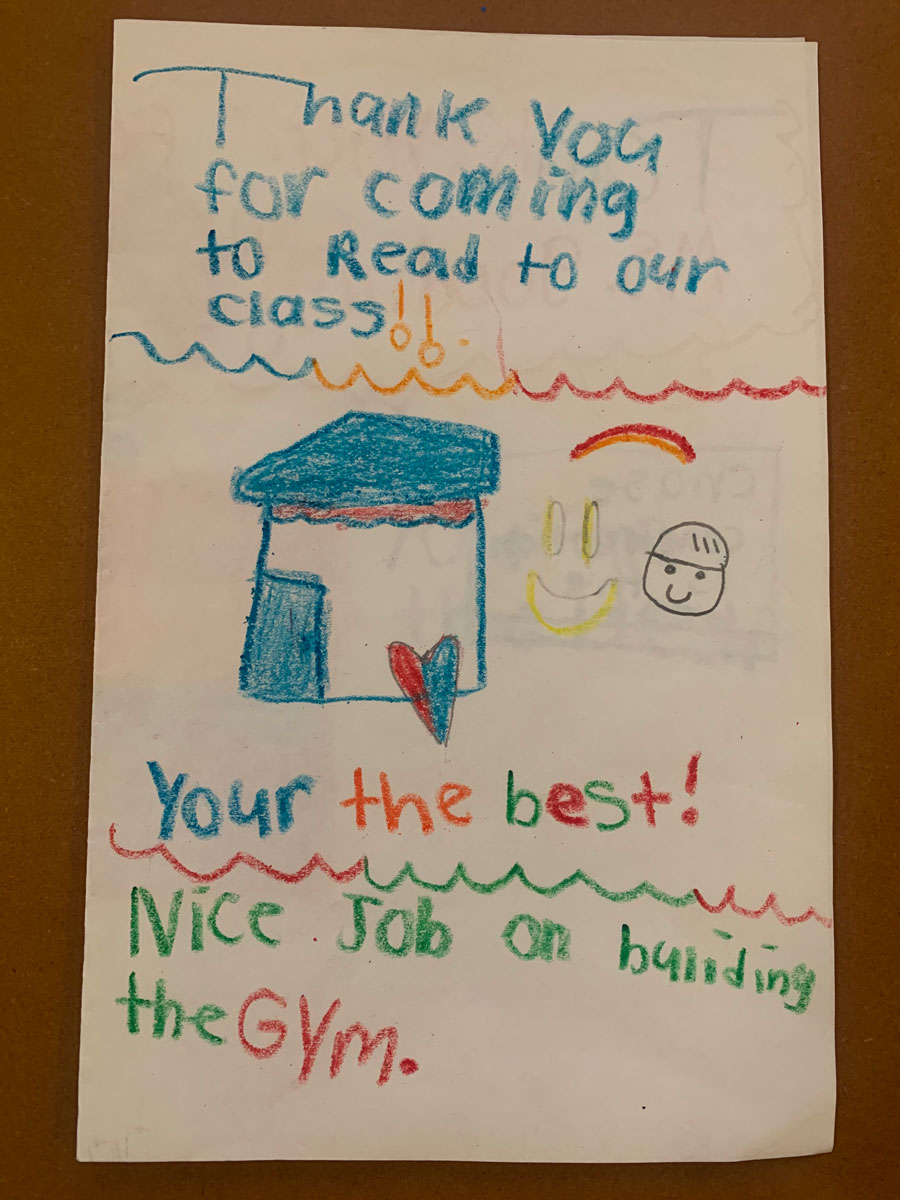 Thank You
for coming
to Read to our
class!!
Your the best!
Nice Job on buliding
the Gym.